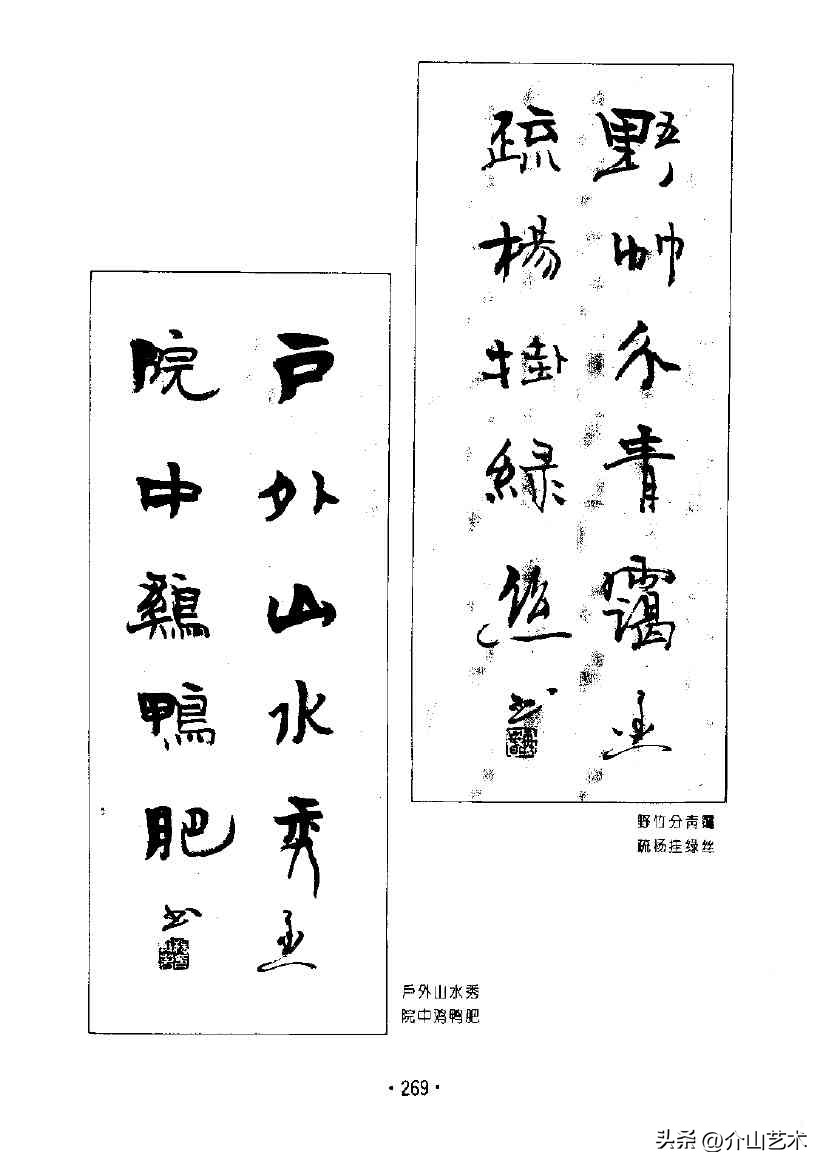 野竹分青靄
疏楊掛綠丝
书
户外山水秀
院中鷄鴨肥
书
野竹分青霭
疏杨挂绿丝
戶外山水秀
院中鸡鸭肥
·269·
头条 @介山艺术